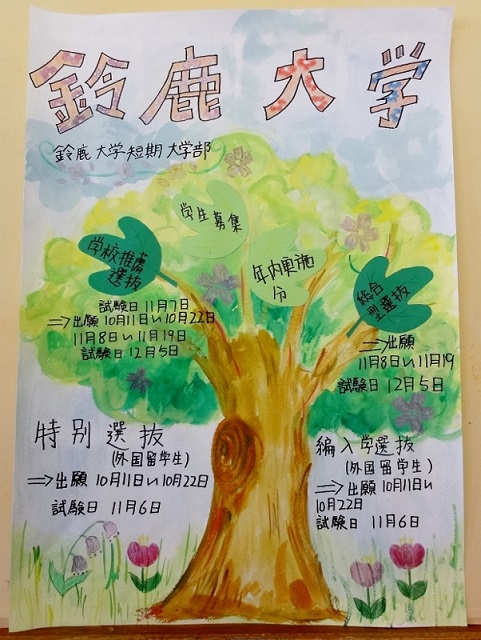 鈴鹿大学
鈴鹿大学短期大学部
学生募集
年内実施
分
学校推薦
選抜
試験日 11月7日
⇒出願 10月11日~10月22日
11月8日~11月19日
試験日 12月5日
総合
型選抜
⇒出願
11月8日~11月19
試験日 12月5日
特別選抜
(外国留学生)
⇒出願 10月11日~10月22日
試験日 11月6日
編入学選抜
(外国留学生)
⇒出願 10月11日~
10月22日
試験日 11月6日